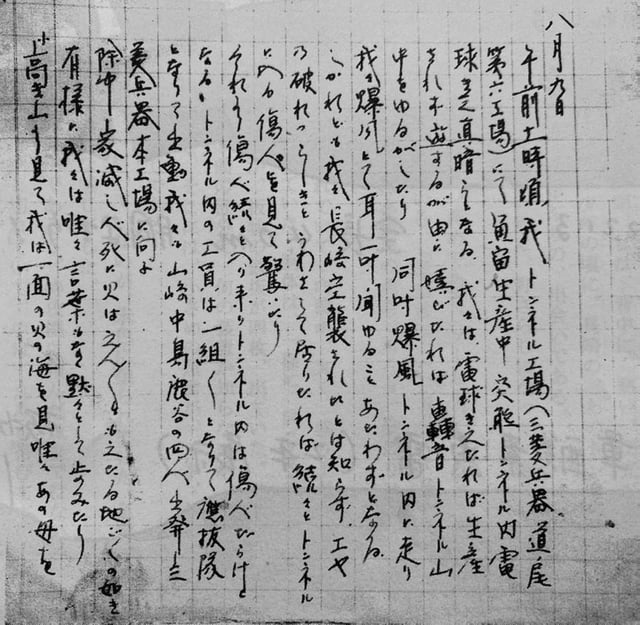 八月九日
午前十一時頃、我トンネル工場(三菱兵器道尾
第六工場)にて魚雷生産中突然トンネル内電
球きえ真暗となる 我々は、電球きえたれば生産
されず遊するが由に喜びたれば轟音トンネル山
中をゆるがしたり 同時爆風トンネル内に走り
我々爆風にて耳一時聞ゆることあたわずとなる
しかれども我々長崎空襲されたとは知らず エヤ
の破れつらしきとうわさして居りたれば続々とトンネル
に入る傷人を見て驚いたり
それより傷人続々と入り来りトンネル内は傷人だらけと
なる トンネル内の工員は一組〱となりて應援隊
となりて出動我々も山崎中島鹿谷の四人出発 三
菱兵器本工場に向よ
途中一家滅し人死に火はえん〱ともえたる地ごくの如き
有様に我々は唯々言葉もなく黙々として止のみたり
小高き山より見て我は一面の火の海を見唯々あの母を